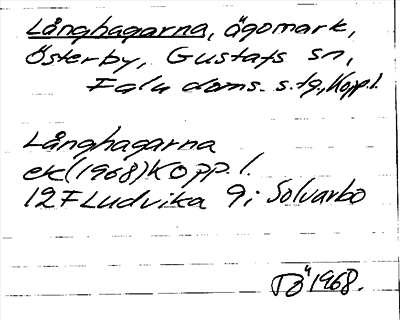 Långhagarna, ägomark,
Österby, Gustafs sn,
Falu doms. s.tg, Kopp.l.
Långhagarna
ek(1968)Kopp.l.
12F Ludvika 9i Solvarbo
TÖ 1968.